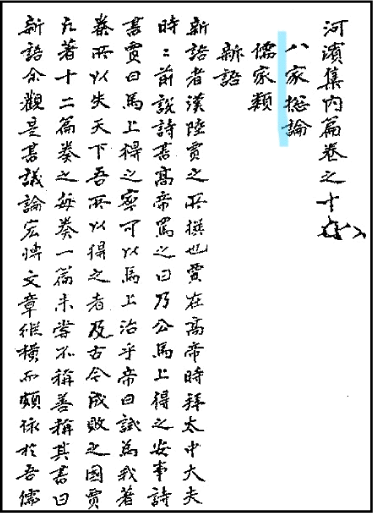 河濱集内篇卷之十
八家総論
儒家類
新語
新語者漢陸賈之所撰也賈在高帝時拜太中大夫
時〻前説詩書高帝罵之曰乃公馬上得之安事詩
書賈曰馬上得之寧可以馬上治乎帝曰試為我著
秦所以失天下吾所以得之者及古今成敗之國賈
凡著十二篇奏之每奏一篇未嘗不稱善稱其書曰
新語今觀是書議論宏博文章縱橫而頗於吾儒